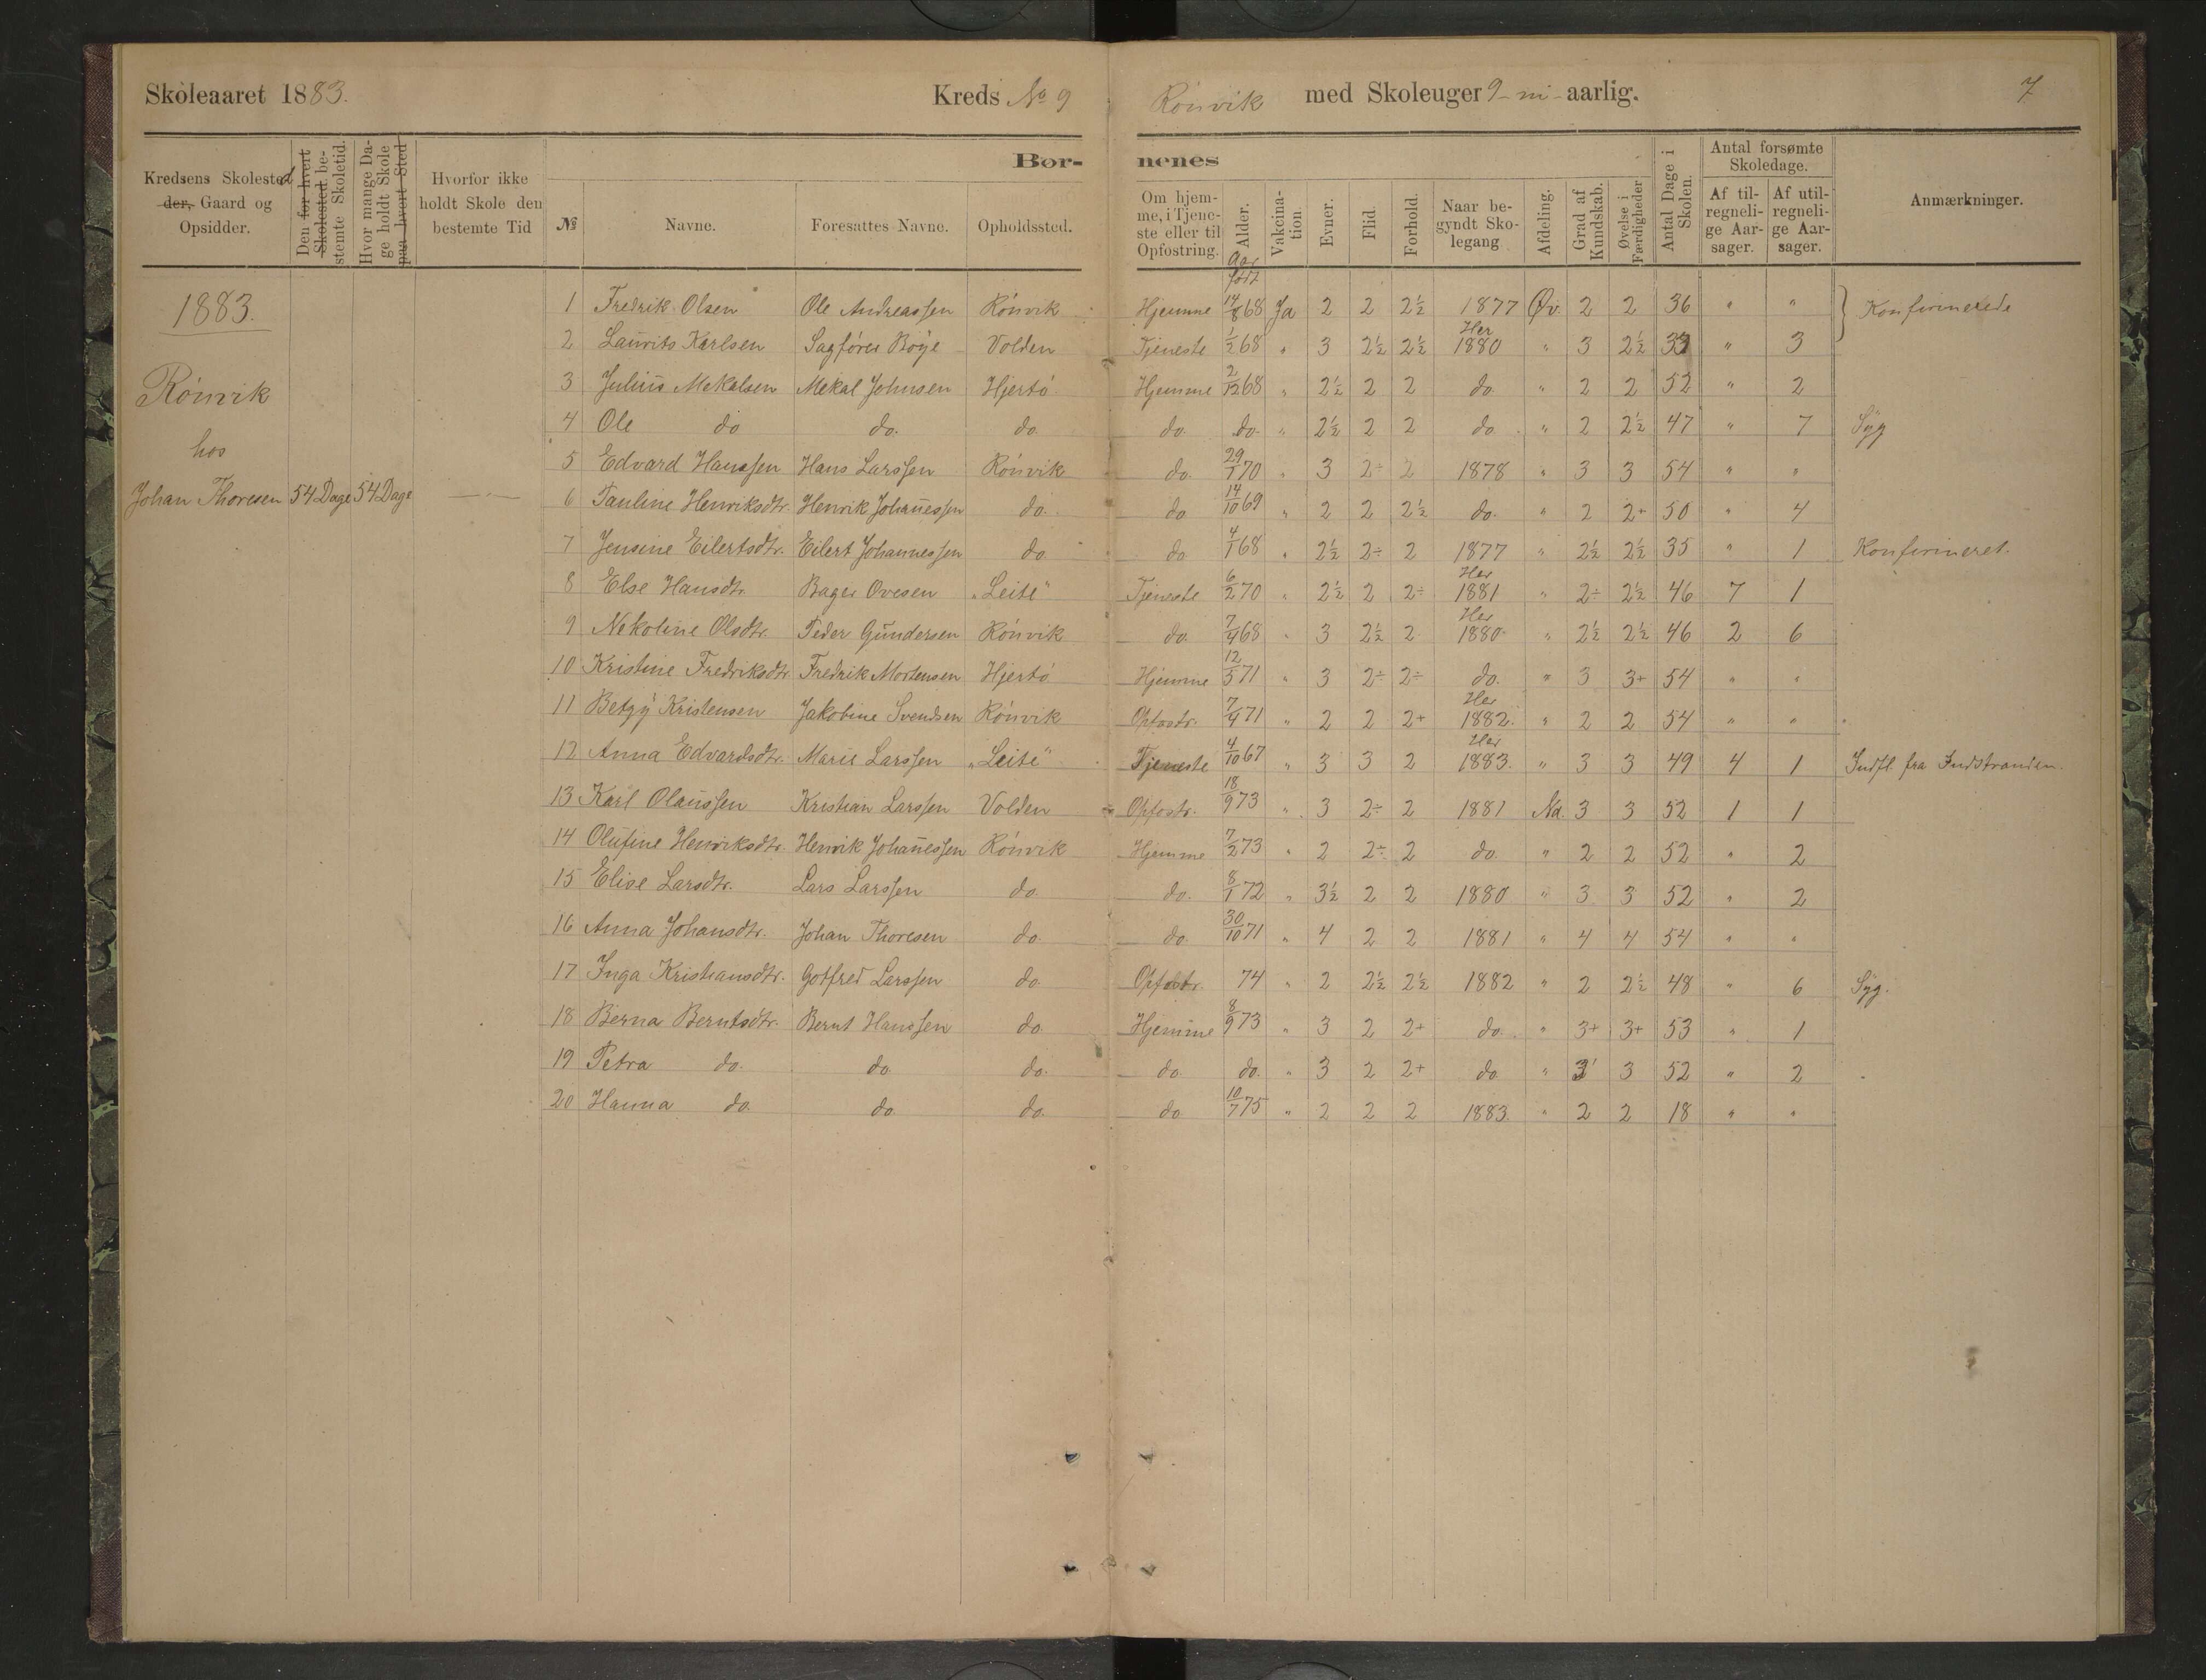 Skoleaaret 1883. Kreds No 9 Rönvik med Skoleuger 9 - ni - aarlig. 7
Kredsens Skolested der, Gaard og Opsidder. Den for hvert Skolested bestemte Skoletid. Hvor mange Dage holdt Skole paa hvert Sted Hvorfor ikke holdt Skole den bestemte Tid Børnenes
№ Navne. Foresattes Navne. Opholdssted. Om hjemme, i Tjeneste eller til Opfostring. Alder. Aar født Vakcination. Evner. Flid. Forhold. Naar begyndt Skolegang Afdeling. Grad af Kundskab. Øvelse i Færdigheder Antal Dage i Skolen. Antal forsømte Skoledage. Af tilregnelige Aarsager. Af utilregnelige Aarsager. Anmærkninger.
1883.
Rönvik
hos
Johan Thoresen 54 Dage 54 Dage — —
1 Fredrik Olsen Ole Andreassen Rönvik Hjemme 14/8 68 Ja 2 2 2½ 1877 Øv. 2 2 36 " " } Konfirmerede
2 Laurits Karlsen Sagförer Böye Volden Tjeneste 1/2 68 " 3 2½ 2½ Her 1880 " 3 2½ 33 " 3
3 Julius Mekalsen Mekal Johnsen Hjertö Hjemme 2/12 68 " 2½ 2 2 do. " 2 2 52 " 2
4 Ole do do. do. do. do. " 2½ 2 2 do. " 2 2½ 47 " 7 Syg
5 Edvard Hanssen Hans Larssen Rönvik do. 29/1 70 " 3 2÷ 2 1878 " 3 3 54 " "
6 Pauline Henriksdtr. Henrik Johanessen do. do. 14/10 69 " 2 2 2½ do. " 2 2+ 50 " 4
7 Jensine Eilertsdtr. Eilert Johannessen do. do. 4/1 68 " 2½ 2÷ 2 1877 " 2½ 2½ 35 " 1 Konfirmeret.
8 Else Hansdtr. Bager Ovesen "Leite" Tjeneste 6/2 70 " 2½ 2 2÷ Her 1881 " 2÷ 2½ 46 7 1
9 Nekoline Olsdtr. Peder Gundersen Rönvik do. 7/4 68 " 3 2½ 2 Her 1880. " 2½ 2½ 46 2 6
10 Kristine Fredriksdtr. Fredrik Mortensen Hjertö Hjemme 12/5 71 " 3 2÷ 2÷ do. " 3 3+ 54 " "
11 Betzy Kristensen Jakobine Svendsen Rönvik Opfostr. 7/4 71 " 2 2 2+ Her 1882. " 2 2 54 " "
12 Anna Edvardsdtr. Marie Larssen "Leite" Tjeneste 4/10 67 " 3 3 2 Her 1883. " 3 3 49 4 1 Indfl. fra Indstranden.
13 Karl Olaussen Kristian Larssen Volden Opfostr. 18/9 73 " 3 2÷ 2 1881 Nd. 3 3 52 1 1
14 Olufine Henriksdtr. Henrik Johanessen Rönvik Hjemme 7/2 73 " 2 2÷ 2 do. " 2 2 52 " 2
15 Elise Larsdtr. Lars Larssen do. do. 8/1 72 " 3½ 2 2 1880 " 3 3 52 " 2
16 Anna Johansdtr. Johan Thoresen do. do. 30/10 71 " 4 2 2 1881 " 4 4 54 " "
17 Inga Kristiansdtr. Gotfred Larssen do. Opfostr. 74 " 2 2½ 2½ 1882 " 2 2½ 48 " 6 Syg.
18 Berna Berntsdtr. Bernt Hanssen do. Hjemme 8/9 73 " 3 2 2+ do. " 3+ 3+ 53 " 1
19 Petra do. do. do. do. do. " 3 2 2+ do. " 3 3 52 " 2
20 Hanna do. do. do. do. 10/7 75 " 2 2 2 1883. " 2 2 18 " "